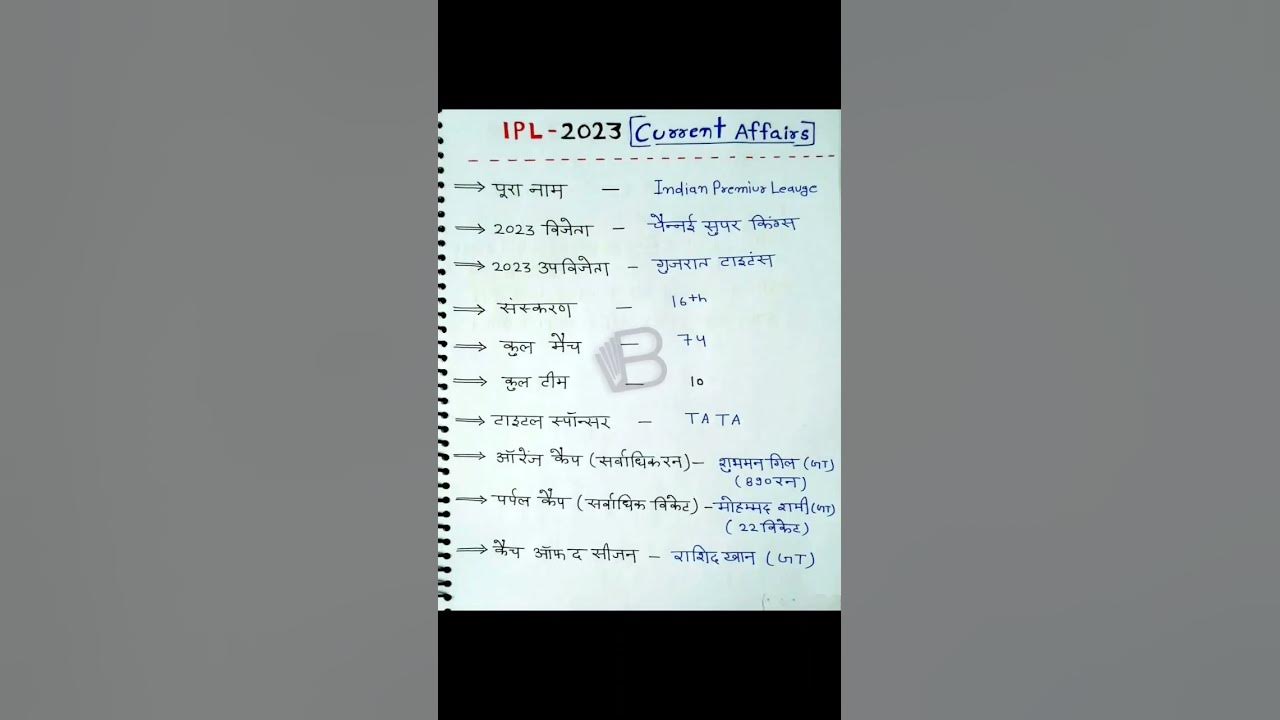 IPL-2023 [Current Affairs]
⟹ पूरा नाम — Indian Premiur Leauge
⟹ 2023 विजेता — चैन्नई सुपर किंग्स
⟹ 2023 उपविजेता — गुजरात टाइटंस
⟹ संस्करण — 16th
⟹ कुल मैच — 74
⟹ कुल टीम — 10
⟹ टाइटल स्पॉन्सर — TATA
⟹ ऑरेंज कैप (सर्वाधिक रन) – शुममन गिल (GT)
(890 रन)
⟹ पर्पल कैप (सर्वाधिक विकेट) – मोहम्मद शमी (GT)
(22 विकेट)
⟹ कैच ऑफ द सीजन – राशिद खान (GT)
B